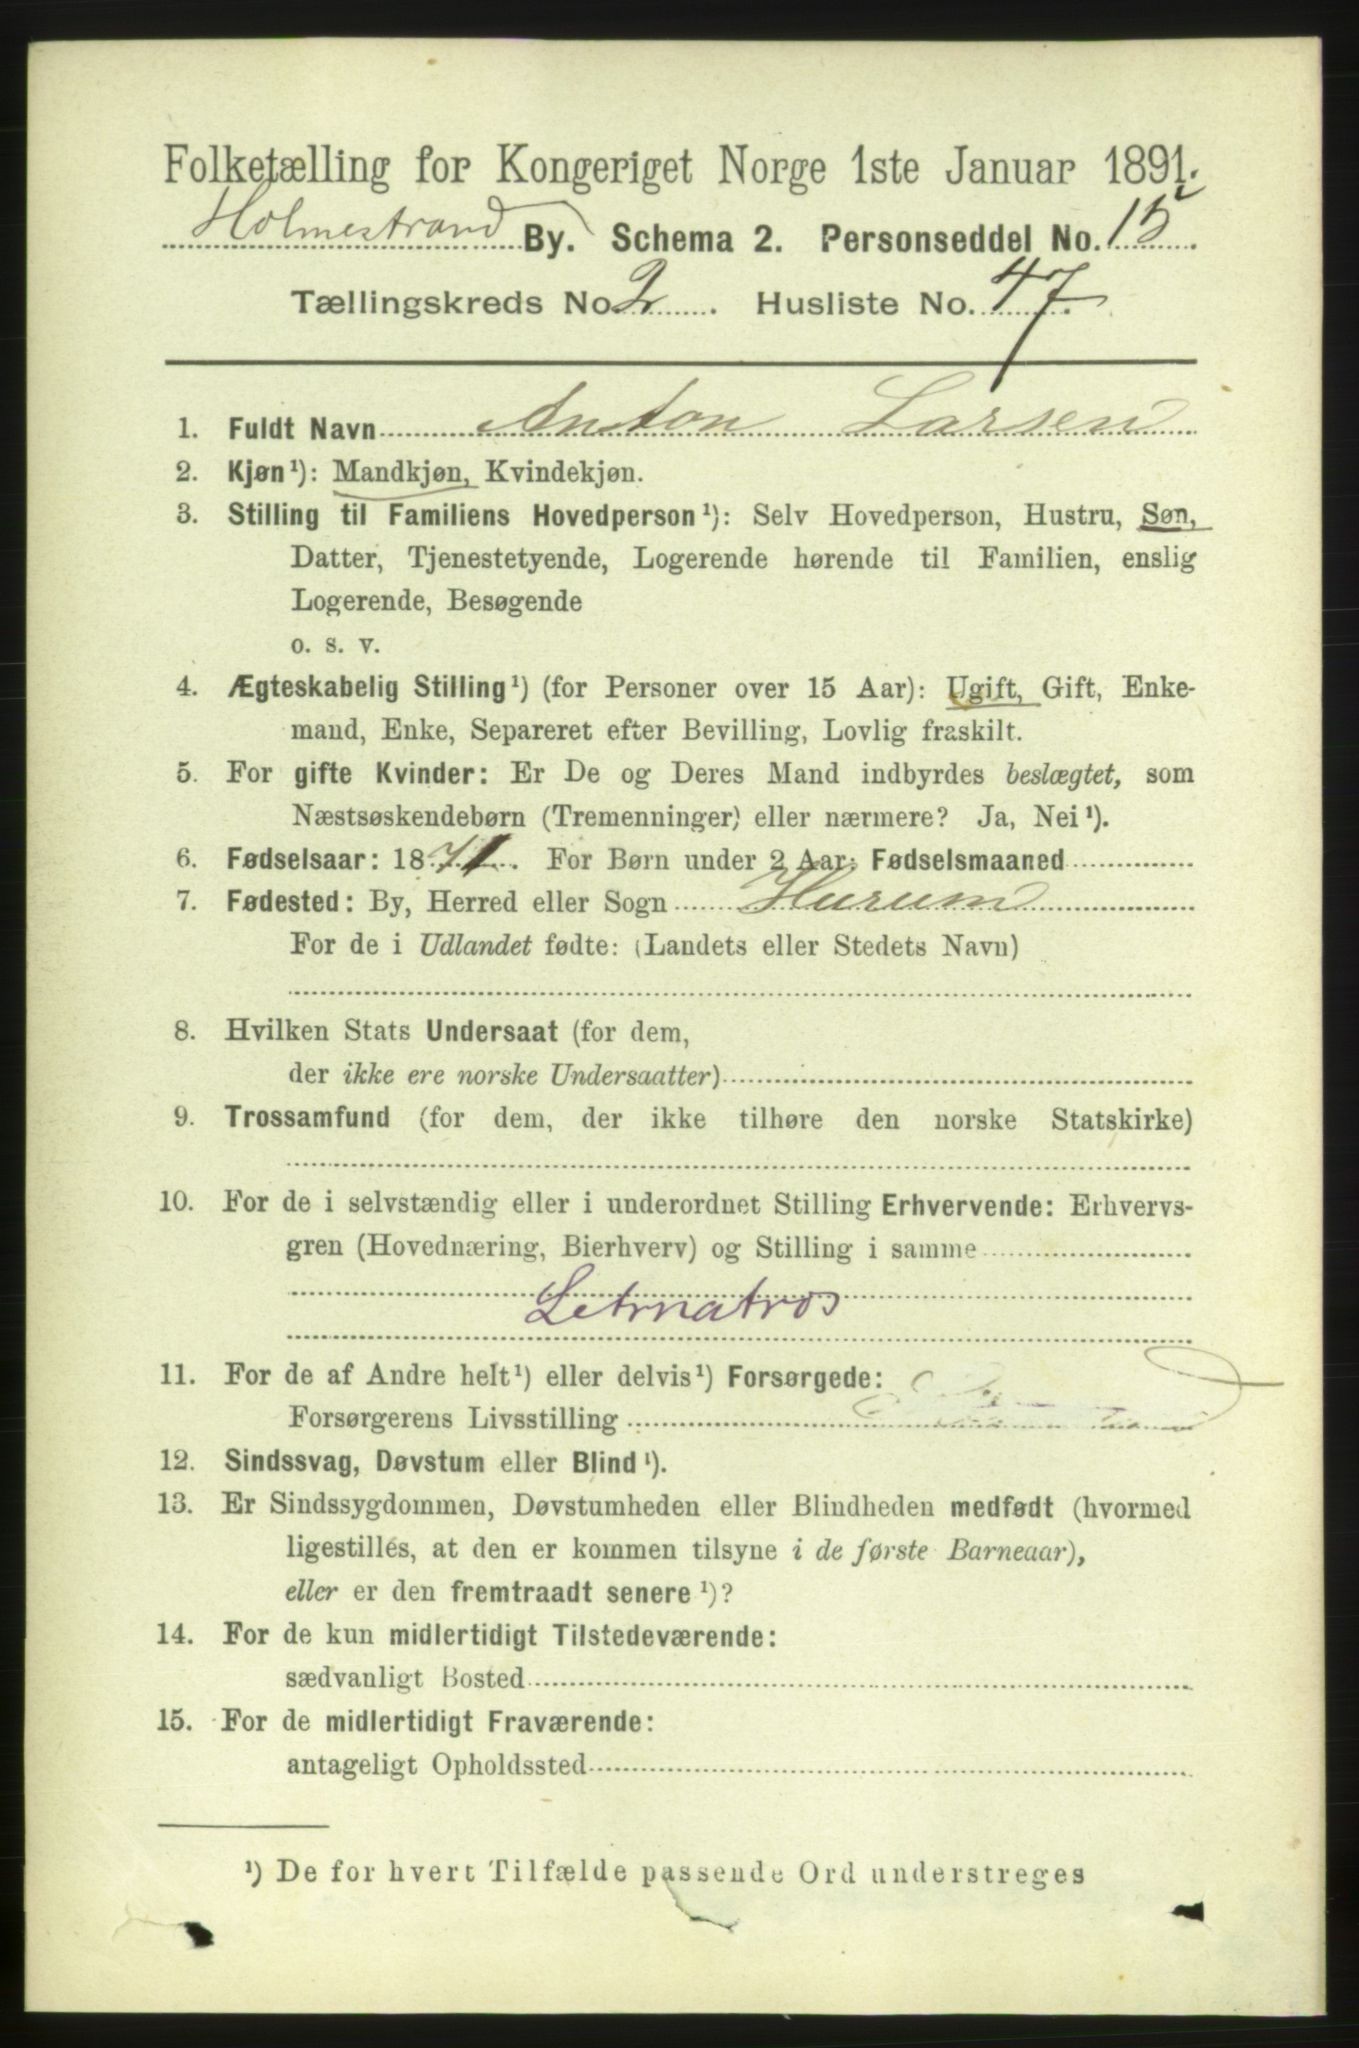 Folketælling for Kongeriget Norge 1ste Januar 1891.
Holmestrand By. Schema 2. Personseddel No. 15.
Tællingskreds No. 2. Husliste No. 47.
1. Fuldt Navn Anton Larsen
2. Kjøn¹): Mandkjøn, Kvindekjøn.
3. Stilling til Familiens Hovedperson¹): Selv Hovedperson, Hustru, Søn,
Datter, Tjenestetyende, Logerende hørende til Familien, enslig
Logerende, Besøgende
o. s. v.
4. Ægteskabelig Stilling¹) (for Personer over 15 Aar): Ugift, Gift, Enke-
mand, Enke, Separeret efter Bevilling, Lovlig fraskilt.
5. For gifte Kvinder: Er De og Deres Mand indbyrdes beslægtet, som
Næstsøskendebørn (Tremenninger) eller nærmere? Ja, Nei¹).
6. Fødselsaar: 1871. For Børn under 2 Aar: Fødselsmaaned
7. Fødested: By, Herred eller Sogn Hurum
For de i Udlandet fødte: (Landets eller Stedets Navn)
8. Hvilken Stats Undersaat (for dem,
der ikke ere norske Undersaatter)
9. Trossamfund (for dem, der ikke tilhøre den norske Statskirke)
10. For de i selvstændig eller i underordnet Stilling Erhvervende: Erhvervs-
gren (Hovednæring, Bierhverv) og Stilling i samme
Letmatros
11. For de af Andre helt¹) eller delvis¹) Forsørgede:
Forsørgerens Livsstilling
12. Sindssvag, Døvstum eller Blind¹).
13. Er Sindssygdommen, Døvstumheden eller Blindheden medfødt (hvormed
ligestilles, at den er kommen tilsyne i de første Barneaar),
eller er den fremtraadt senere¹)?
14. For de kun midlertidigt Tilstedeværende:
sædvanligt Bosted
15. For de midlertidigt Fraværende:
antageligt Opholdssted
¹) De for hvert Tilfælde passende Ord understreges